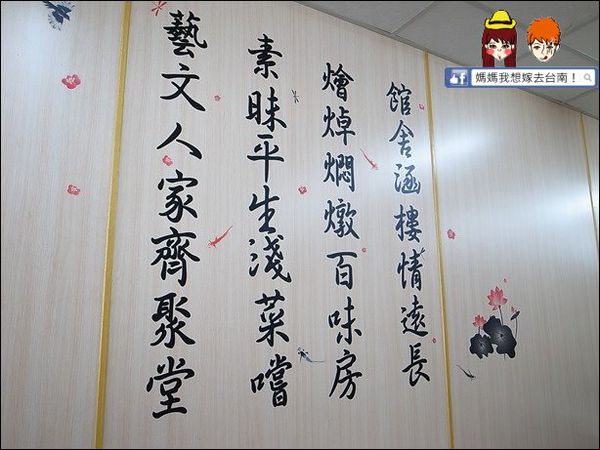 館舍涵樓情遠長
燴焯燜燉百味房
素昧平生淺菜嚐
藝文人家齊聚堂
媽媽我想嫁去台南！